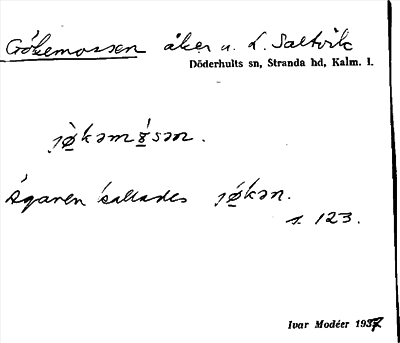 Gökemossen åker u. L. Saltvik
Döderhults sn, Stranda hd, Kalm. l.
Ägaren kallades
s. 123.
Ivar Modéer 1937